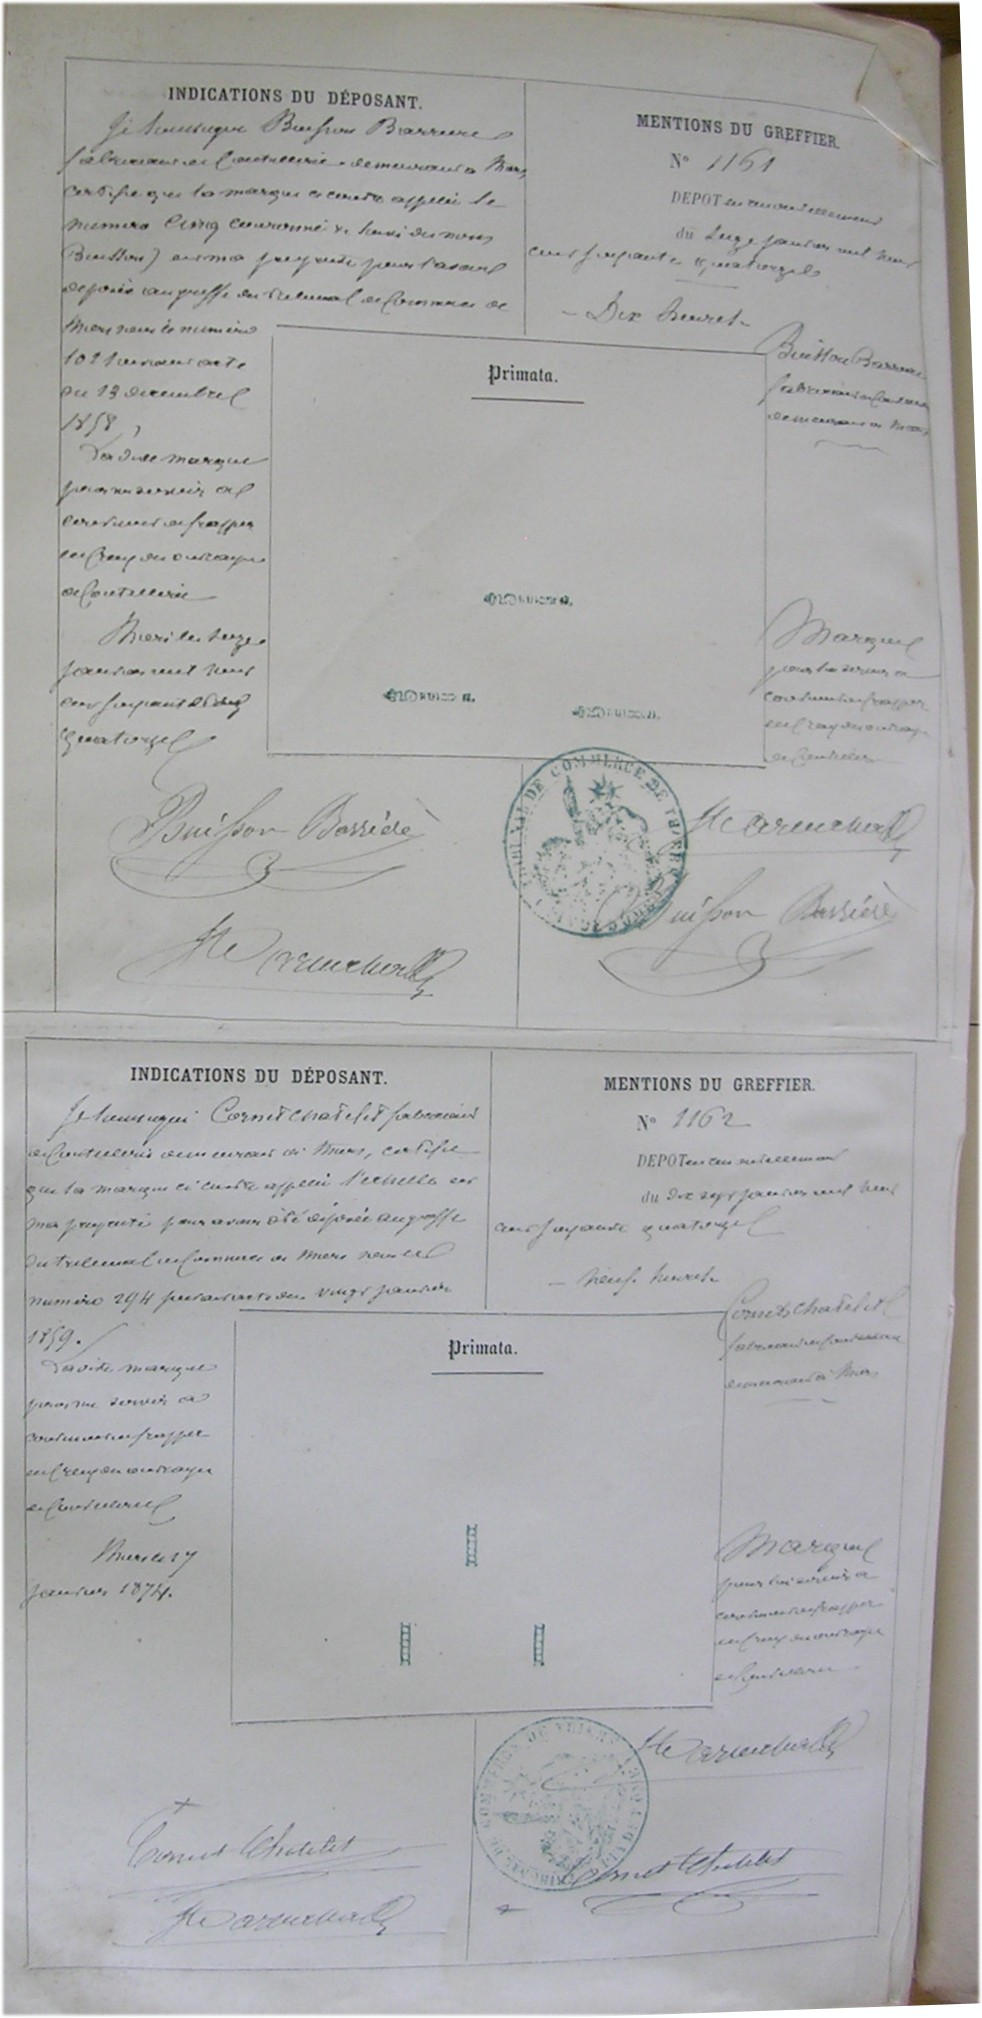 INDICATIONS DU DÉPOSANT.
Je soussigné Buisson Barriere
fabricant de Coutellerie demeurant a Thiers
certifie que la marque ci contre appelée le
numéro Cinq couronné & suivi du nom
Buisson) est ma propriété pour l'avoir
déposée au greffe du tribunal de Commerce de
Thiers sous le numéro
1021 suivant acte
du 13 decembre
1858,
La dite marque
pour me servir a
continuer de frapper
en Creux des ouvrages
de Coutellerie
Thiers le seize
janvier mil huit
cent soixante &
quatorze
Buisson Barriere
MENTIONS DU GREFFIER.
N° 1161
DEPOT en renouvellement
du Seize janvier mil huit
cent soixante quatorze
- Dix heures -
Primata.
Buisson Barriere
fabricant de Coutellerie
demeurant a Thiers
Marque
pour lui servir a
continuer de frapper
en Creux des ouvrages
de Coutellerie
BUISSON
BUISSON
BUISSON
TRIBUNAL DE COMMERCE DE THIERS
Buisson Barriere
INDICATIONS DU DÉPOSANT.
Je soussigné Cornet Chatelet fabricant
de Coutellerie demeurant a Thiers, certifie
que la marque ci contre appelée l'echelle est
ma propriété pour avoir été déposée au greffe
du tribunal de Commerce de Thiers sous le
numéro 294 suivant acte du vingt janvier
1859.
La dite marque
pour me servir a
continuer de frapper
en Creux des ouvrages
de Coutellerie
Thiers le 17
janvier 1874.
Cornet Chatelet
MENTIONS DU GREFFIER.
N° 1162
DEPOT en renouvellement
du Dix sept janvier mil huit
cent soixante quatorze
- Neuf heures -
Primata.
Cornet Chatelet
fabricant de Coutellerie
demeurant a Thiers
Marque
pour lui servir a
continuer de frapper
en Creux des ouvrages
de Coutellerie
TRIBUNAL DE COMMERCE DE THIERS
Cornet Chatelet